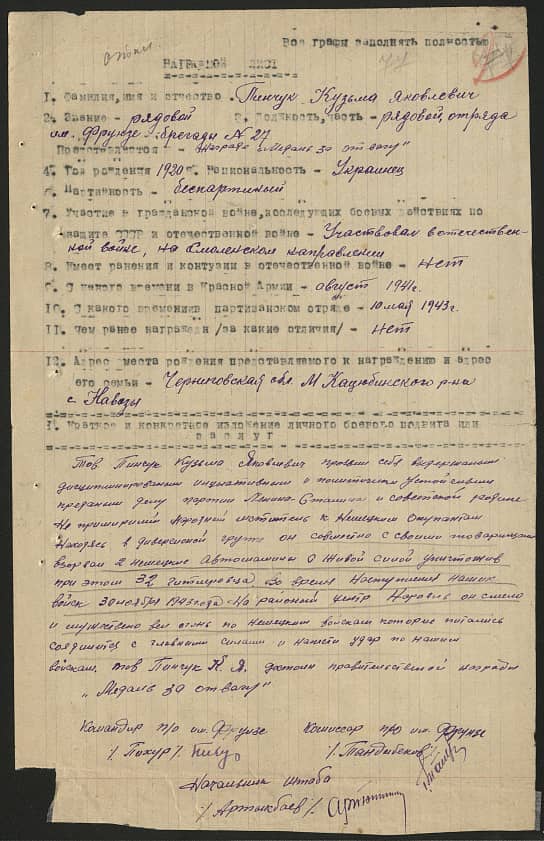 Все графы заполнять полностью
НАГРАДНОЙ ЛИСТ
1. Фамилия, имя и отчество - Пинчук Кузьма Яковлевич
2. Звание - рядовой 3. Должность, часть - рядовой, отряда
им. Фрунзе бригады № 27
Представляется - к награде "Медаль за отвагу"
4. Год рождения 1920 г. 5. Национальность - Украинец
6. Партийность - беспартийный
7. Участие в гражданской войне, последующих боевых действиях по
защите СССР и отечественной войне - Участвовал в отечествен-
ной войне, на Смоленском направлении
8. Имеет ранения и контузии в отечественной войне - нет
9. С какого времени в Красной Армии - август 1941 г.
10. С какого времени в партизанском отряде - 10 май 1943 г.
11. Чем ранее награжден /за какие отличия/ - нет
12. Адрес места рождения представляемого к награждению и адрес
его семьи - Черниговская обл. М Коцюбинского р-на
с Навозы
1. Краткое и конкретное изложение личного боевого подвига или
заслуг
Тов Пинчук Кузьма Яковлевич проявил себя выдержаным
дисциплинированым инициативным и политически устойчивым
преданым делу партии Ленина-Сталина и советской родине
Не примиримый народный мститель к Немецким Окупантам
Находясь в диверсионой групе он совместно с своими товарищами
взорвал 2 немецкие Автомашины с Живой силой уничтожив
при этом 32 гитлеровца Во время Наступления наших
войск 30 ноября 1943 года На районный центр Наровль он смело
и мужествено вел огонь по немецким войскам которые питались
соединится с главными силами и нанести удар по нашим
войскам, тов Пинчук К. Я. достоин правительственой награды
"Медаль за отвагу"
Командир п/о им. Фрунзе Комиссар п/о им. Фрунзе
Начальник штаба
/Артыкбаев/